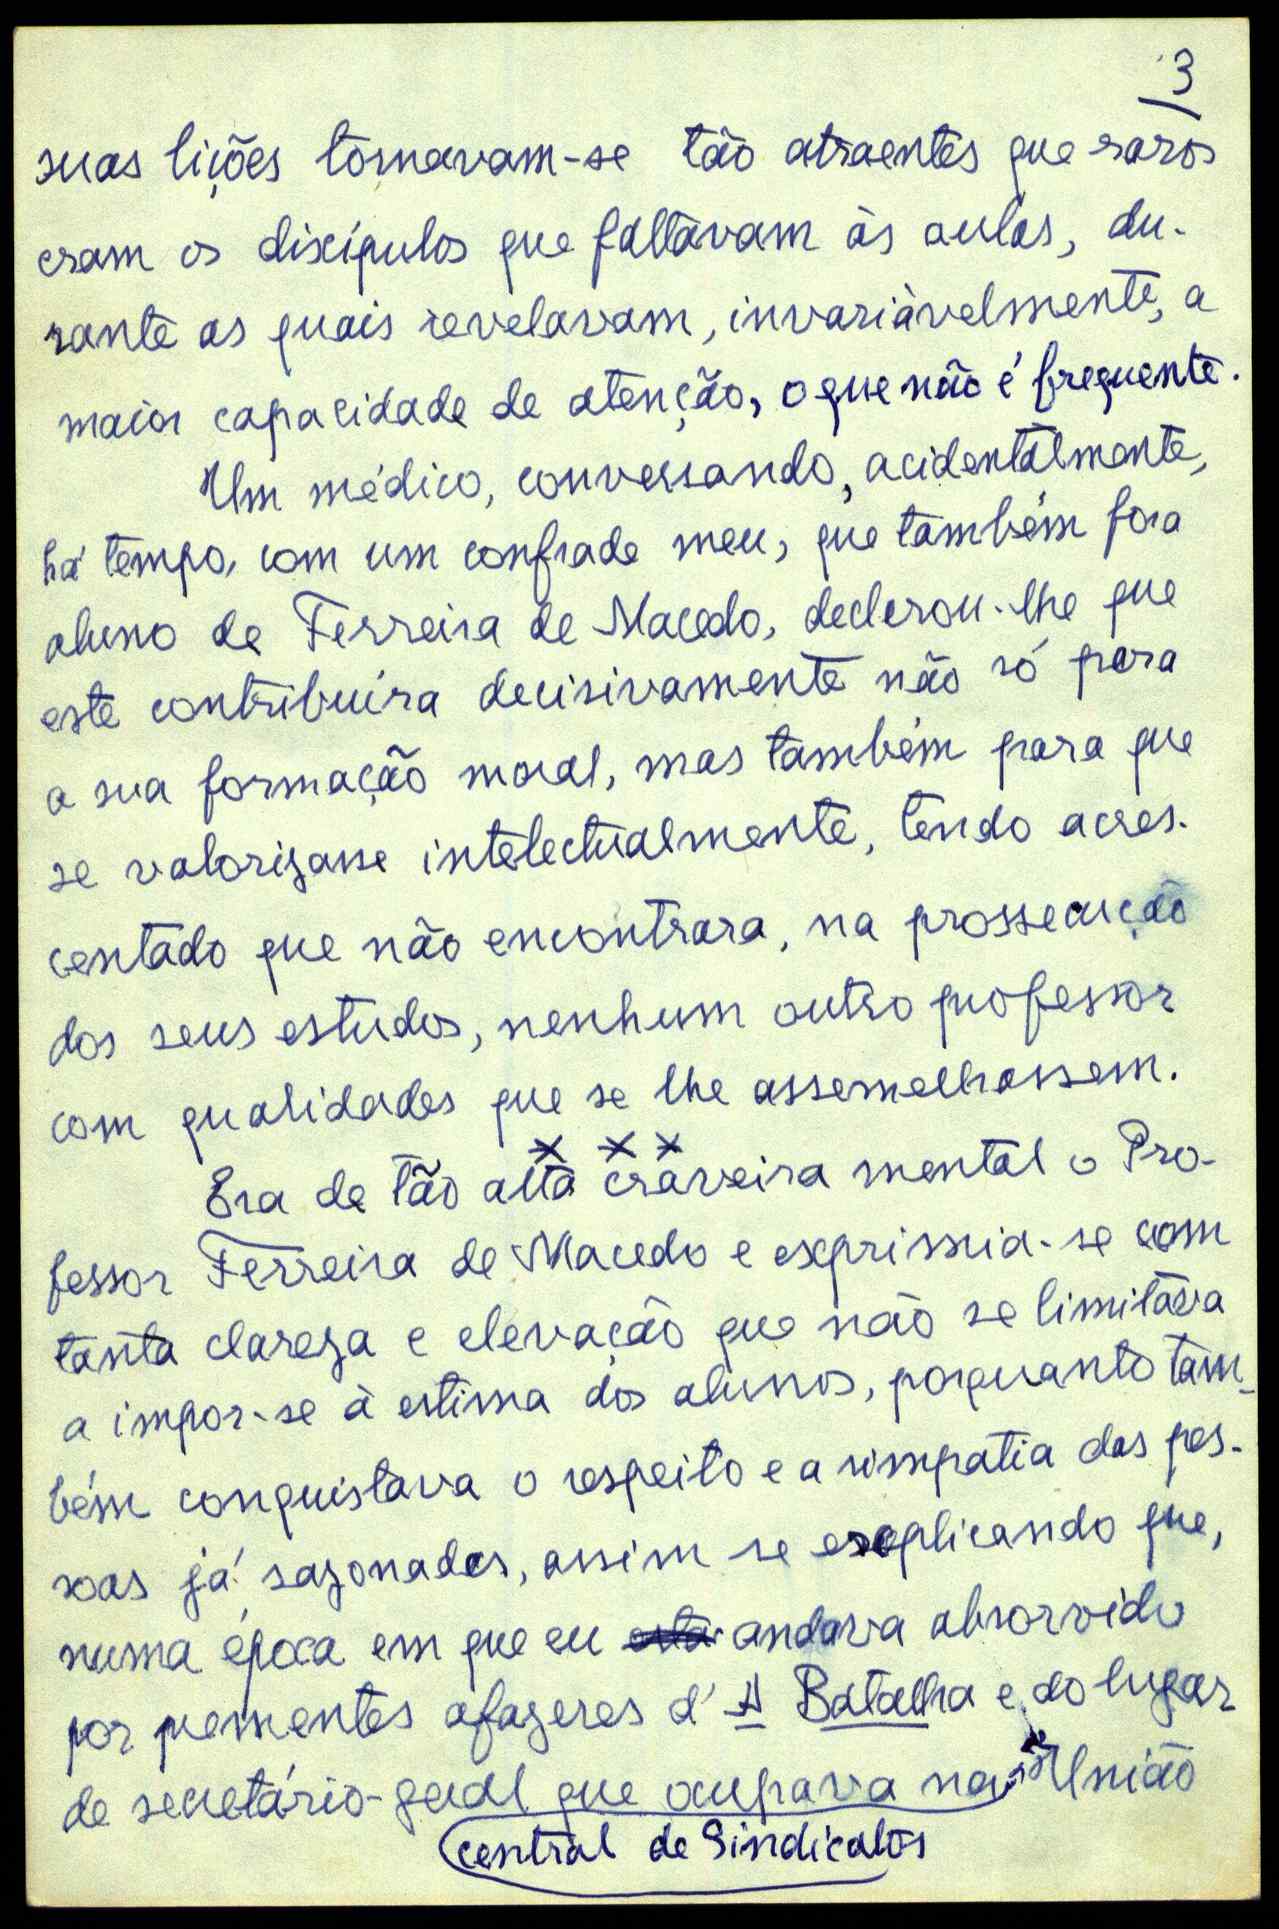 3
suas lições tornavam-se tão atraentes que raros
eram os discípulos que faltavam às aulas, du-
rante as quais revelavam, invariàvelmente, a
maior capacidade de atenção, o que não é frequente.
Um médico, conversando, acidentalmente,
há tempo, com um confrade meu, que também fora
aluno de Ferreira de Macedo, declarou-lhe que
este contribuíra decisivamente não só para
a sua formação moral, mas também para que
se valorizasse intelectualmente, tendo acres-
centado que não encontrara, na prossecução
dos seus estudos, nenhum outro professor
com qualidades que se lhe assemelhassem.
x x x
Era de tão alta craveira mental o Pro-
fessor Ferreira de Macedo e exprimia-se com
tanta clareza e elevação que não se limitava
a impor-se à estima dos alunos, porquanto tam-
bém conquistava o respeito e a simpatia das pes-
soas já sazonadas, assim se explicando que,
numa época em que eu esta andava absorvido
por prementes afazeres d'A Batalha e do lugar
de secretário-geral que ocupava na União
central de Sindicatos